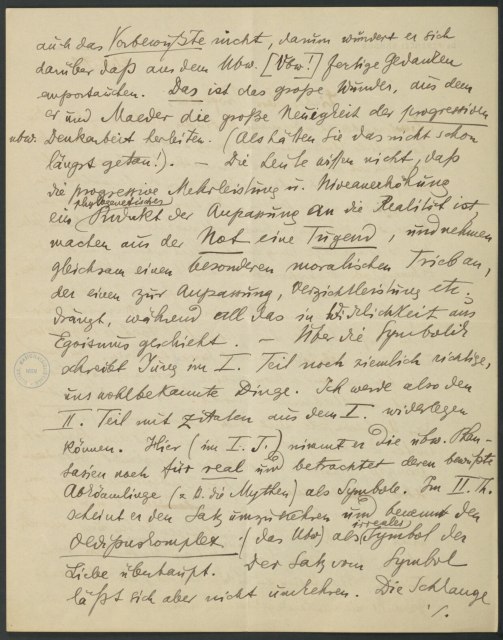 auch das Vorbewußte nicht, darum wundert er sich
darüber daß aus dem Ubw. [Vbw!] fertige Gedanken
auftauchen. Das ist das große Wunder, aus dem
er und Maeder die große Neuigkeit der progressiven
ubw. Denkarbeit herleiten. (Als hätten Sie das nicht schon
längst getan!). — Die Leute wissen nicht, daß
die progressive Mehrleistung u. Niveauerhöhung
ein phylogenetisches Produkt der Anpassung an die Realität ist,
machen aus der Not eine Tugend, und nehmen
gleichsam einen besonderen moralischen Trieb an,
der einen zur Anpassung, Verzichtleistung etc.
drängt, während all das in Wirklichkeit aus
Egoismus geschieht. — Über die Symbolik
schreibt Jung im I. Teil noch ziemlich richtige,
uns wohlbekannte Dinge. Ich werde also den
II. Teil mit Zitaten aus dem I. widerlegen
können. Hier (im I. T.) nimmt er die ubw. Phan-
tasien noch für real und betrachtet deren bewußte
Abkömmlinge (z. B. die Mythen) als Symbole. Im II. Th.
scheint er den Satz umzukehren und benennt den
Oedipuskomplex (das Ubw) als irreales Symbol der
Liebe überhaupt. Der Satz vom Symbol
läßt sich aber nicht umkehren. Die Schlange
./.